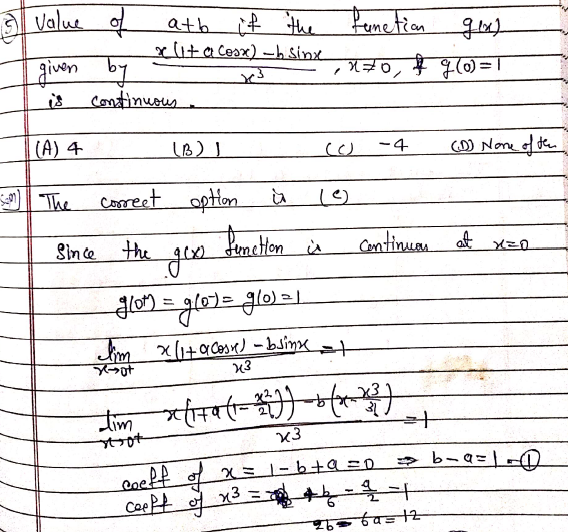 (5) Value of a+b if the function g(x)
given by x(1+a cosx) - b sinx / x³ , x≠0, & g(0)=1
is continuous.
(A) 4 (B) 1 (C) -4 (D) None of
Soln) The correct option is (c)
Since the g(x) function is continuous at x=0
g(0⁺) = g(0⁻) = g(0) = 1
lim x→0⁺ x(1+a cosx) - b sinx / x³ = 1
lim x→0⁺ x(1+a(1-x²/2!)) - b(x-x³/3!) / x³ = 1
coeff of x = 1-b+a=0 ⇒ b-a=1 -①
coeff of x³ = +b/6 - a/2 = 1
2b - 6a = 12